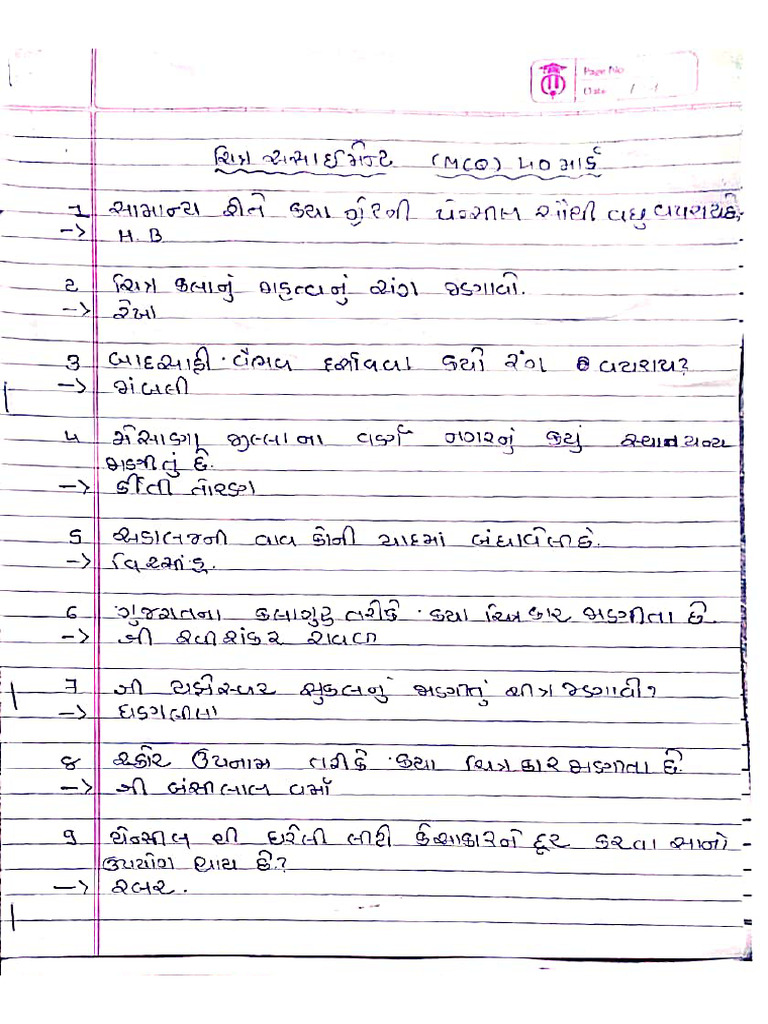 Page No
Date / /
ચિત્ર અસાઈમેન્ટ (MCQ) ૫૦ માર્ક
1 સામાન્ય રીતે કયા ગ્રેરની પેન્સીલ સૌથી વધુ વપરાય છે.
-> H.B
૨ ચિત્ર કલાનું મહત્વનું અંગ જણાવો.
-> રેખા
૩ બાદસાહી વૈભવ દર્શાવવા કયો રંગ વપરાય?
-> જાંબલી
૪ મેસાણા જીલ્લાના વડનગરનું કયું સ્થાપન્ય
જાણીતું છે.
-> કીર્તી તોરણ
૫ અડાલજની વાવ કોની યાદમાં બંધાવેલી છે.
->
૬ ગુજરાતના કલાગુરુ તરીકે કયા ચિત્રકાર જાણીતા છે.
-> શ્રી રવીશંકર રાવળ
૭ શ્રી યજ્ઞેસ્વર શુકલનું જાણીતું ચીત્ર જણાવો?
->
૮ ચકોર ઉપનામ તરીકે કયા ચિત્રકાર જાણીતા છે.
-> શ્રી બંસીલાલ વર્મા
૯ પેન્સીલ થી દોરેલી લીટી કેઆકારને દૂર કરવા સાનો
ઉપયોગ થાય છે?
-> રબર.